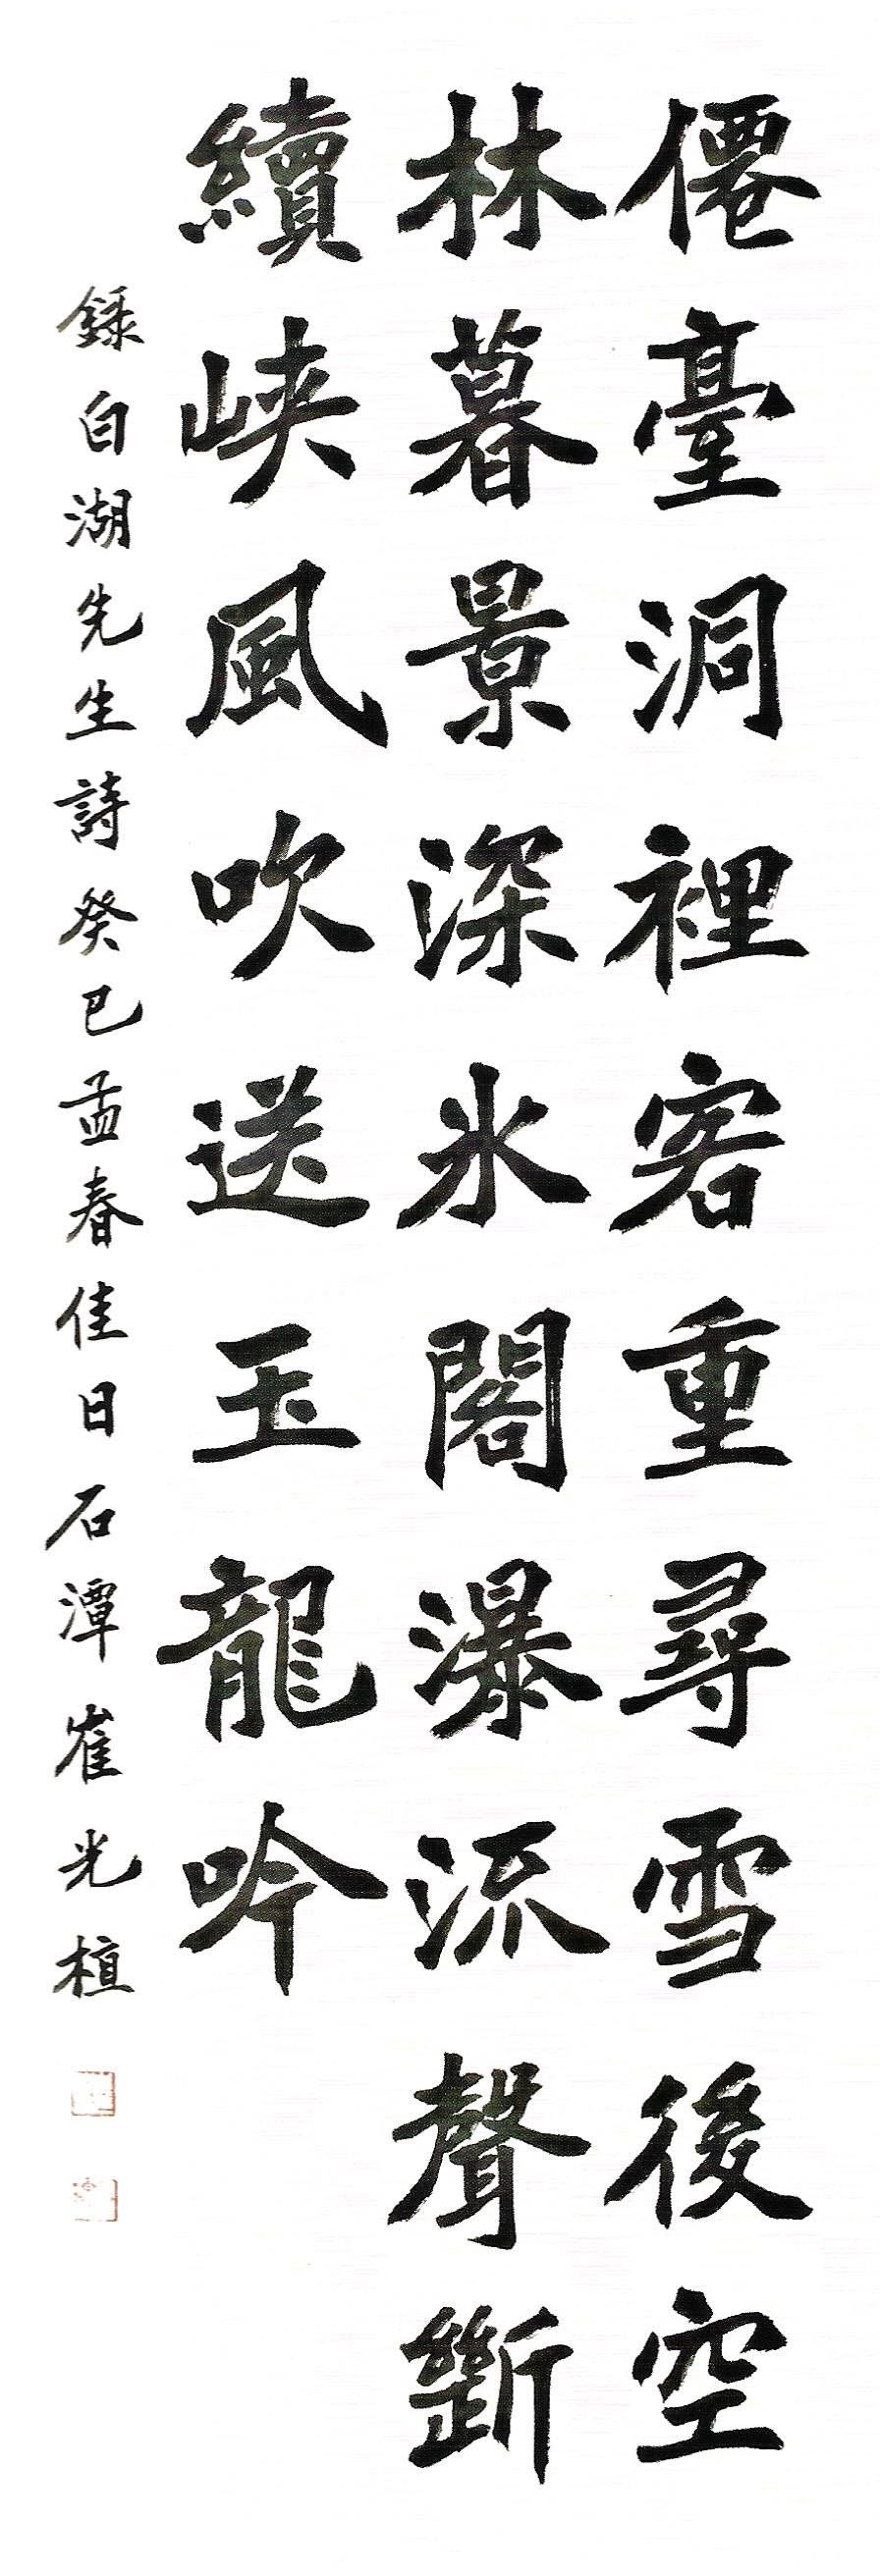 僊臺洞裡客重尋雪後空
林暮景深氷閣瀑流聲斷
續峽風吹送玉龍吟
錄白湖先生詩癸巳孟春佳日石潭崔光植